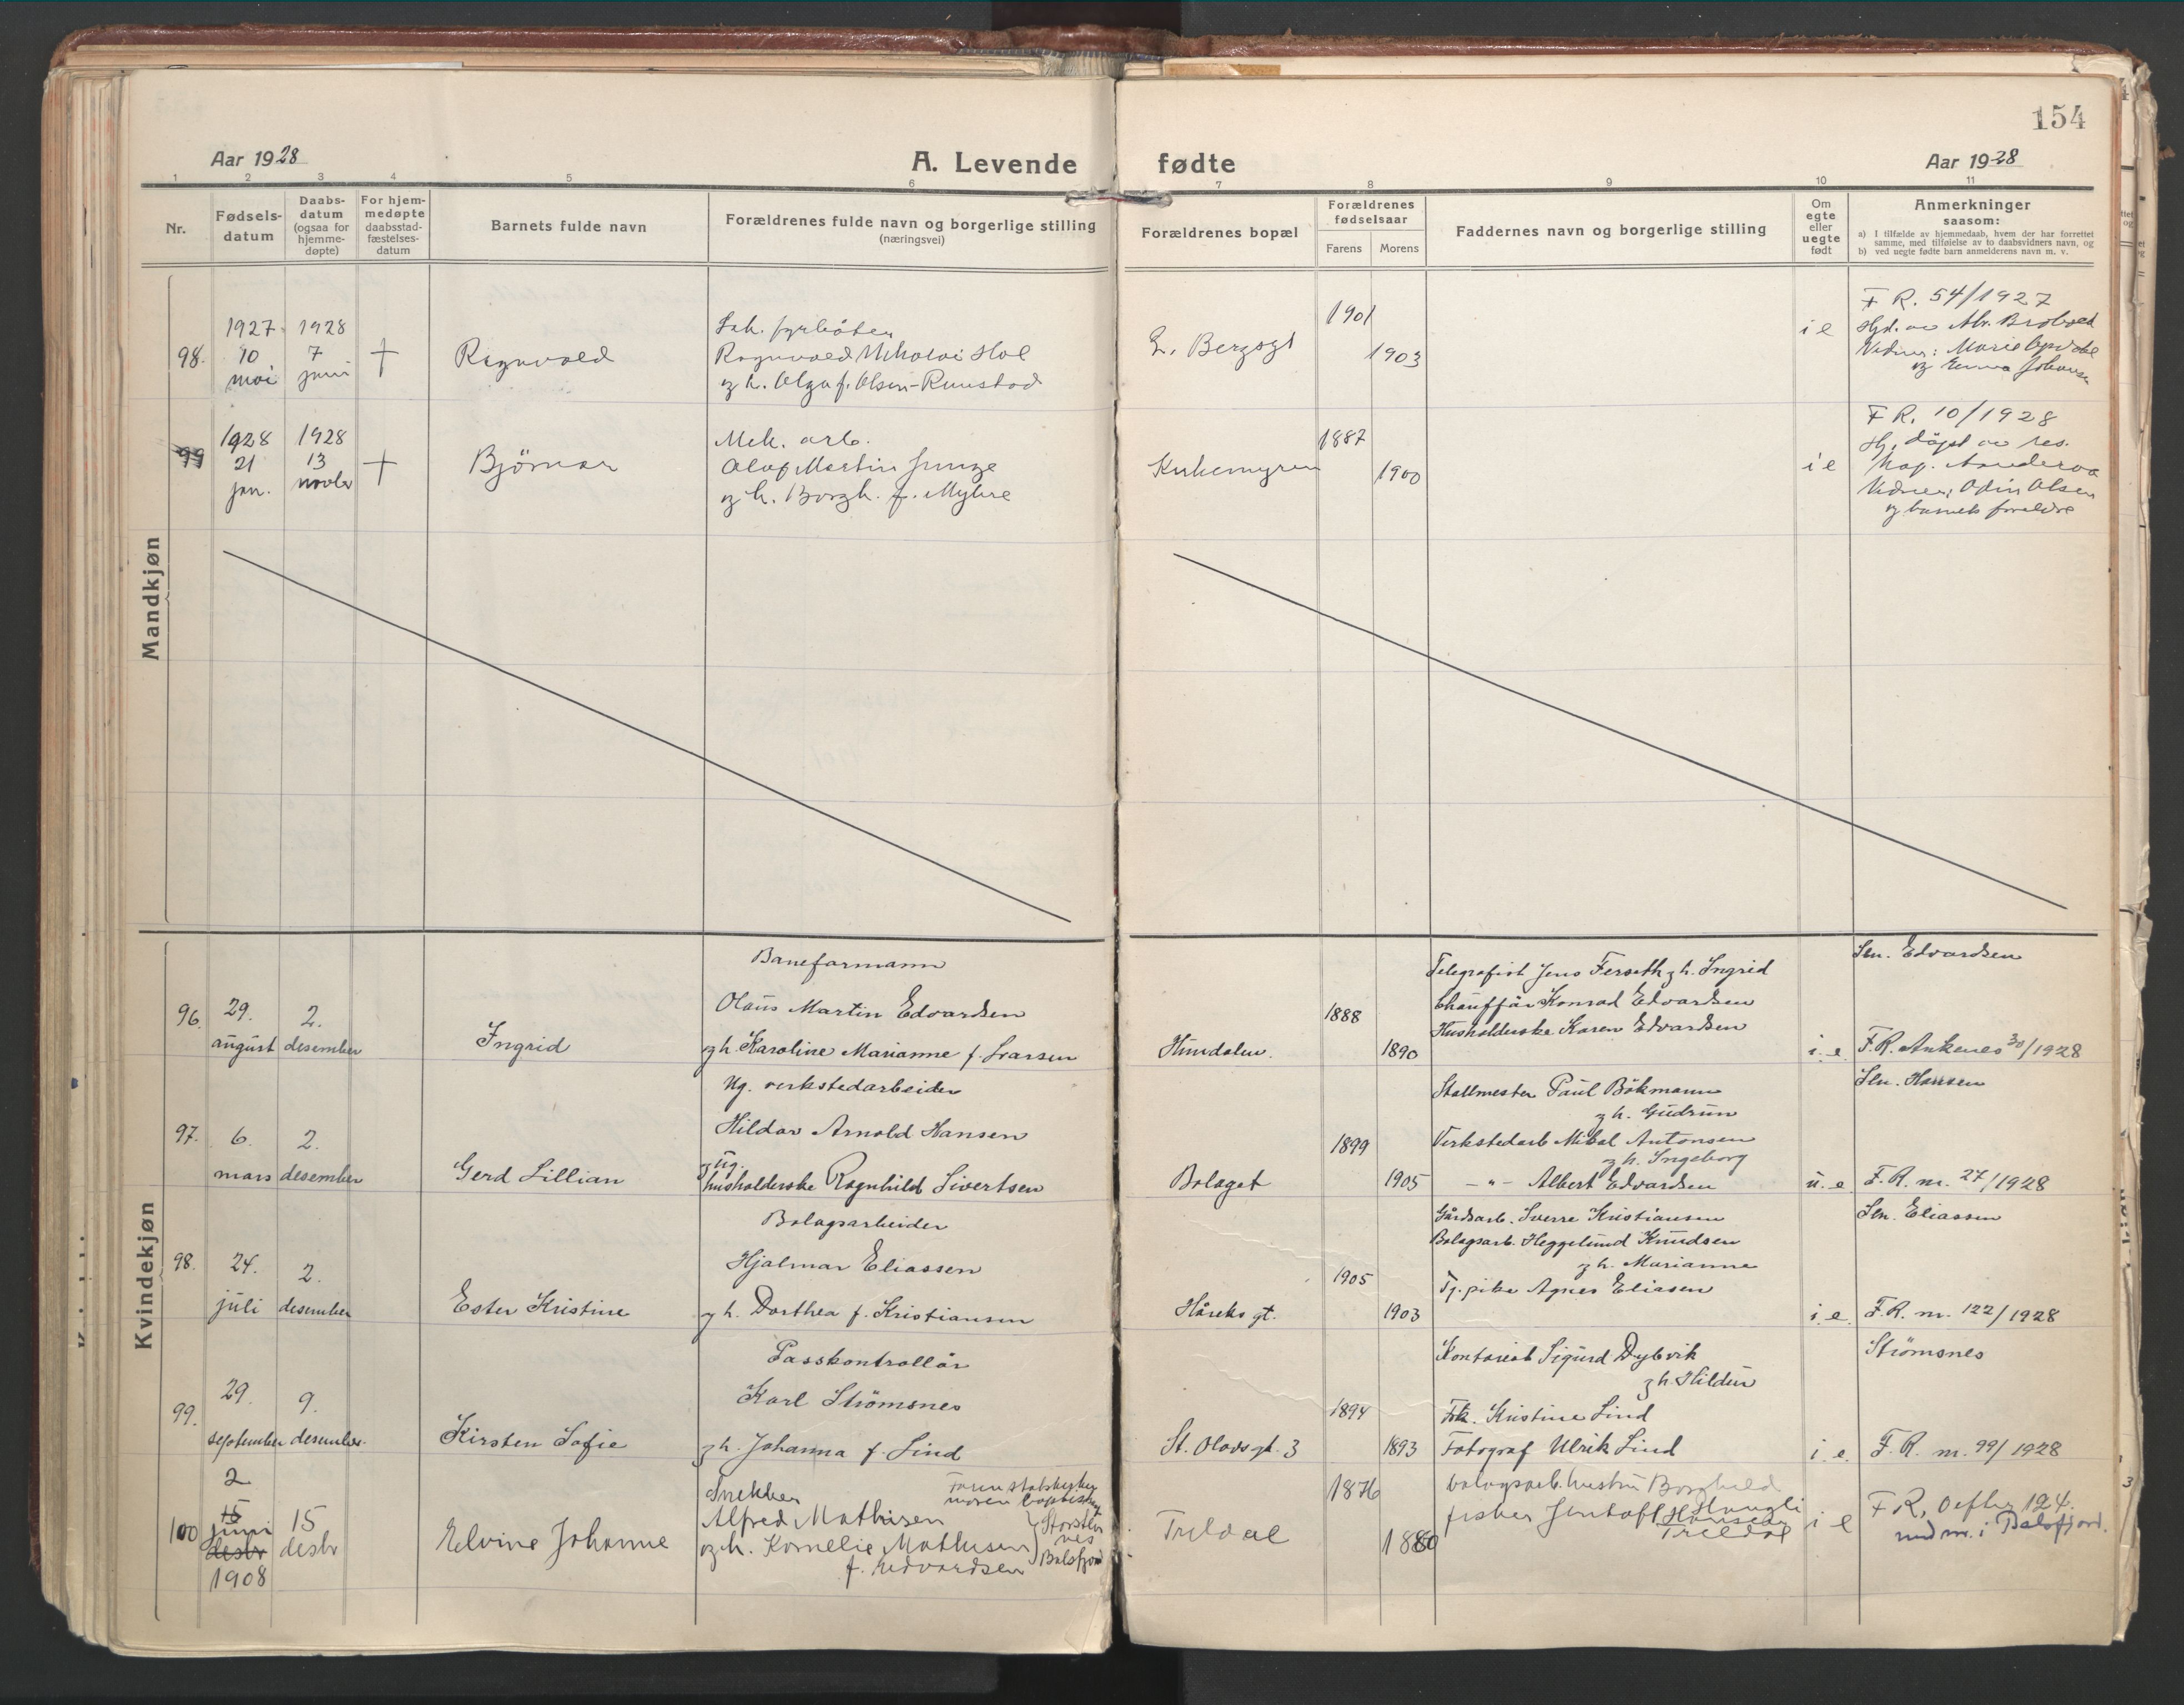 154
Aar 1928
A. Levende fødte
Aar 1928
1 2 3 4 5 6 7 8 9 10 11
Nr.
Fødsels-
datum
Daabs-
datum
(ogsaa for
hjemme-
døpte)
For hjem-
medøpte
daabsstad-
fæstelses-
datum
Barnets fulde navn
Forældrenes fulde navn og borgerlige stilling
(næringsvei)
Forældrenes bopæl
Forældrenes
fødselsaar
Farens
Morens
Faddernes navn og borgerlige stilling
Om
egte
eller
uegte
født
Anmerkninger
saasom:
a) I tilfælde av hjemmedaab, hvem der har forrettet
samme, med tilføielse av to daabsvidners navn, og
b) ved uegte fødte barn anmelderens navn m. v.
Mandkjøn
98.
1927
10
mai
1928
7
juni
†
Ragnvald
Lok. fyrböter
Ragnvald Nikolai Hol
og h. Olga f. Olsen-Runstad
L. Bergsgt
1901
1903
i e
F R. 54/1927
Hjd. av Alv. Brobyed
Vidner: Marie
og Emma Johansen
99
1928
21
jan.
1928
13
novbr
†
Björnar
Mek. arb.
Olaf Martin Junge
og h. Borgh. f. Myhre
Kirkemyren
1887
1900
i e
F R. 10/1928
Hj. döpt av res.
kap. Aanderaa
Vidner, Odin Olsen
og barnets foreldre
Kvindekjøn
96.
29.
august
2.
desember
Ingrid
Baneformann
Olaus Martin Edvardsen
og h. Karoline Marianne f. Larsen
Hundalen.
1888
1890
Telegrafist Jens Ferseth og h. Ingrid
Chaufför Konrad Edvardsen
Husholderske Karen Edvardsen
i. e.
Sen. Edvardsen
F.R. Ankenes 30/1928
97.
6.
mars
2.
desember
Gerd Lillian
Ug. verkstedarbeider
Hildor Arnold Hansen
og ug.
husholderske Ragnhild Sivertsen
Bolaget
1899
1905
Stallmester Paul Bökmann
og h. Gudrun
Verkstedarb Mikal Antonsen
og h. Ingeborg
- " - Albert Edvardsen
u. e.
Sen. Hansen
F.R. nr. 27/1928
98.
24.
juli
2.
desember
Ester Kristine
Bolagsarbeider
Hjalmar Eliassen
og h. Dorthea f. Kristiansen
Håreks gt.
1905
1903
Gårdsarb. Sverre Kristiansen
Bolagsarb. Heggelund Knudsen
og h. Marianne
Tj. pike Agnes Eliasen
i. e.
Sen. Eliassen
F.R. nr. 122/1928
99.
29.
september
9.
desember.
Kirsten Sofie
Passkontrollör
Karl Strömsnes
og h. Johanna f. Lind
St. Olavsgt. 3
1894
1893
Kontorist Sigurd Dybvik
og h. Hildur
Frk. Kristine Lind
Fotograf Ulrik Lind
i. e.
Strömsnes
F.R. nr. 99/1928
100
2
15
juni
desbr
1908
15
desbr
Elvine Johanne
Snekker
Alfred Mathisen
og h. Kornelie Mathisen
f. Edvardsen
Faren statskirke
moren baptist
Storsten
nes
Balsfjord
Treldal
1876
1880
bolagsarb. hustru Borghild
fisker Jentoft Hansen
Haugli
Treldal
i e
F R, Oefter 124.
und nr. i Balsfjord.